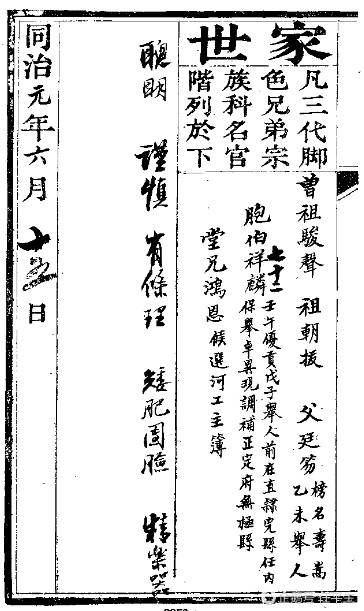 家世
凡三代脚
色兄弟宗
族科名官
階列於下
曾祖駿聲 祖朝拔 父廷
榜名壽嵩
乙未舉人
胞伯祥麟
七十二
壬午優貢戊子舉人前在直隸完縣任內
保舉卓異現調補正定府無極縣
堂兄鴻恩候選河工主簿
聰明 謹慎 有條理 矮肥圓臉 精
同治元年六月 十 日